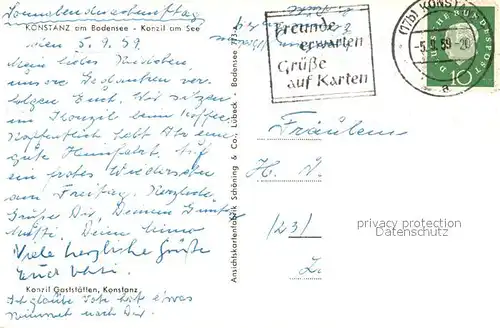 Sonnabendnachmittag
KONSTANZ am Bodensee - Konzil am See
den 5.9.59
Mein liebes
unsere Gedanken ver-
folgen Euch. Wir sitzen
im Konzil beim Kaffee.
Hoffentlich habt Ihr eine
gute Heimfahrt. Auf
ein frohes Wiedersehen
am Freitag. Herzliche
Grüße Dir, Deinen
Mutti. Deine
Viele herzliche Grüße
Euch
Konzil Gaststätten, Konstanz
Ich glaube hat etwas
nach Dir.
Ansichtskartenfabrik Schöning & Co., Lübeck · Bodensee
Freunde
erwarten
Grüße
auf Karten
(17b) KONSTANZ
-5.9.59-20
a
DEUTSCHE BUNDESPOST
10
Fräulein
H. V.
(23)
L.
privacy protection
Datenschutz